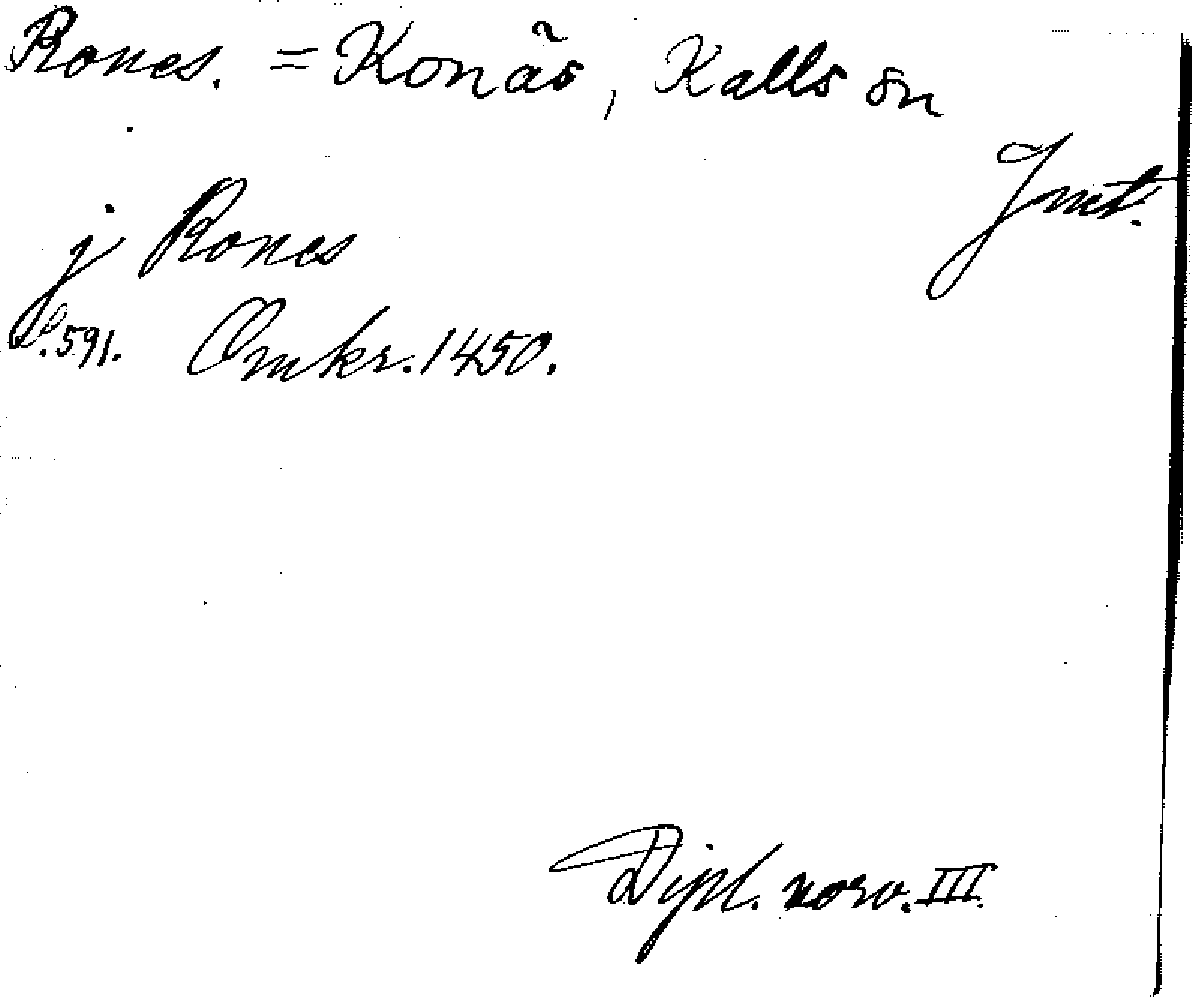 Rones. = Konäs, Kalls sn
Jmt.
j Rones
S. 591. Omkr. 1450.
Dipl. norv. III.